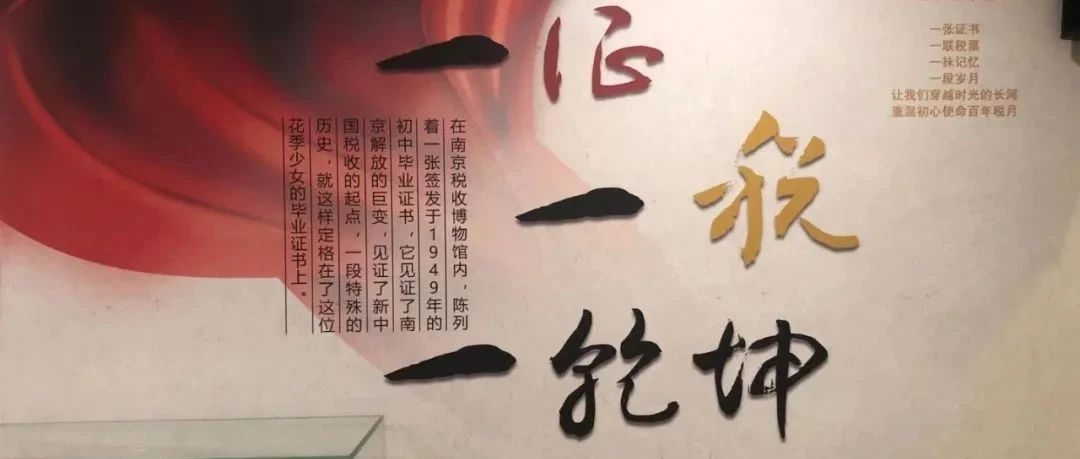 一证
一税
一乾坤
在南京税收博物馆内，陈列
着一张签发于1949年的
初中毕业证书，它见证了南
京解放的巨变，见证了新中
国税收的起点，一段特殊的
历史，就这样定格在了这位
花季少女的毕业证书上。
一张证书
一联税票
一抹记忆
一段岁月
让我们穿越时光的长河
重温初心使命百年税月